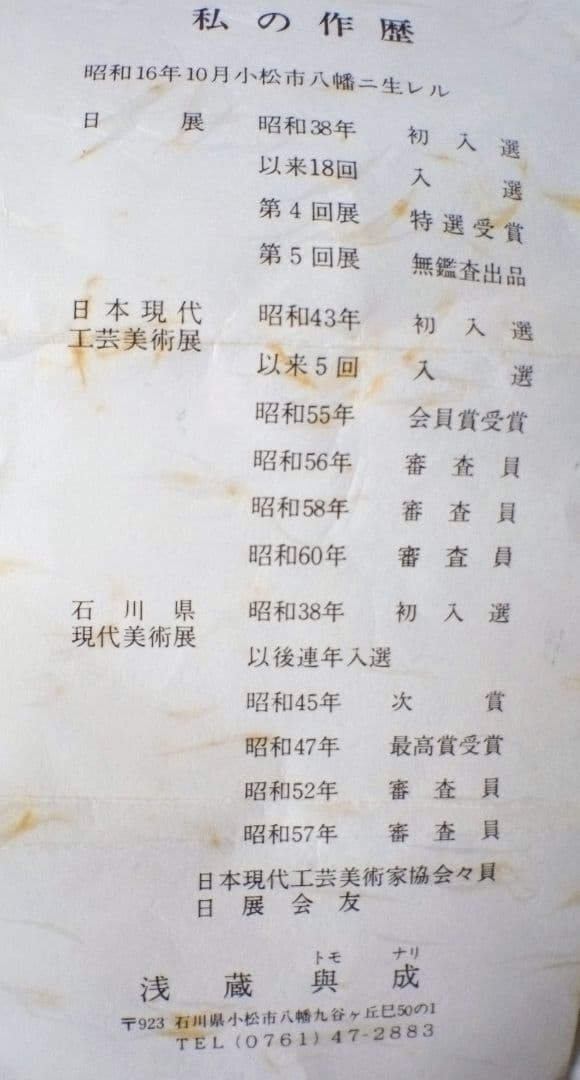 私の作歴
昭和16年10月小松市八幡ニ生レル
日展 昭和38年 初入選
以来18回 入選
第4回展 特選受賞
第5回展 無鑑査出品
日本現代
工芸美術展 昭和43年 初入選
以来5回 入選
昭和55年 会員賞受賞
昭和56年 審査員
昭和58年 審査員
昭和60年 審査員
石川県
現代美術展 昭和38年 初入選
以後連年入選
昭和45年 次賞
昭和47年 最高賞受賞
昭和52年 審査員
昭和57年 審査員
日本現代工芸美術家協会々員
日展会友
トモ ナリ
浅蔵與成
〒923 石川県小松市八幡九谷ヶ丘巳50の1
TEL (0761) 47-2883